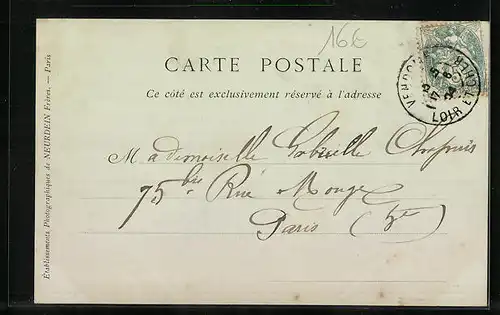 16€
CARTE POSTALE
Ce côté est exclusivement réservé à l'adresse
LOIR ET CHER
Mademoiselle Gabrielle Chapuis
75 bis Rue Monge
Paris (5e
Établissements Photographiques de NEURDEIN Frères. — Paris